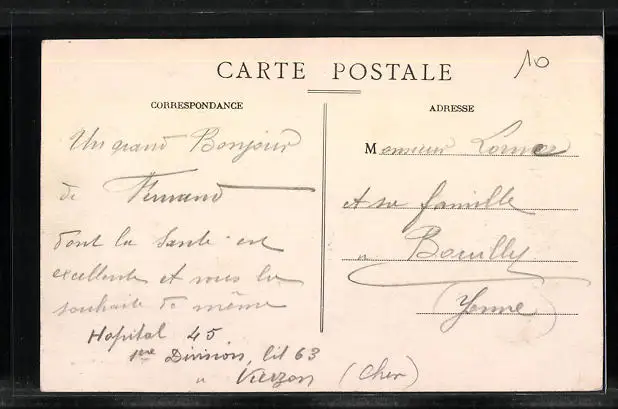 10
CARTE POSTALE
CORRESPONDANCE
Un grand Bonjour
de Fernand
dont la santé est
excellente et vous la
souhaite de même
Hopital 45
1ere Division, lit 63
a Vierzon (Cher)
ADRESSE
Monsieur
et sa famille
a Bouilly
(Yonne)